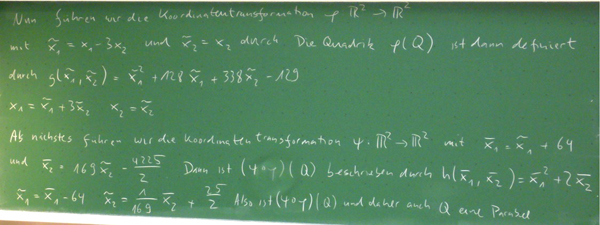 Nun führen wir die Koordinatentransformation φ ℝ² → ℝ²
mit x̃₁ = x₁ - 3x₂ und x̃₂ = x₂ durch Die Quadrik φ(Q) ist dann definiert
durch g(x̃₁, x̃₂) = x̃₁² + 128 x̃₁ + 338 x̃₂ - 129
x₁ = x̃₁ + 3x̃₂ x₂ = x̃₂
Als nächstes führen wir die Koordinatentransformation ψ: ℝ² → ℝ² mit x̄₁ = x̃₁ + 64
und x̄₂ = 169 x̃₂ - 4225/2 Dann ist (ψ∘φ)(Q) beschrieben durch h(x̄₁, x̄₂) = x̄₁² + 2x̄₂
x̃₁ = x̄₁ - 64 x̃₂ = 1/169 x̄₂ + 25/2 Also ist (ψ∘φ)(Q) und daher auch Q eine Parabel